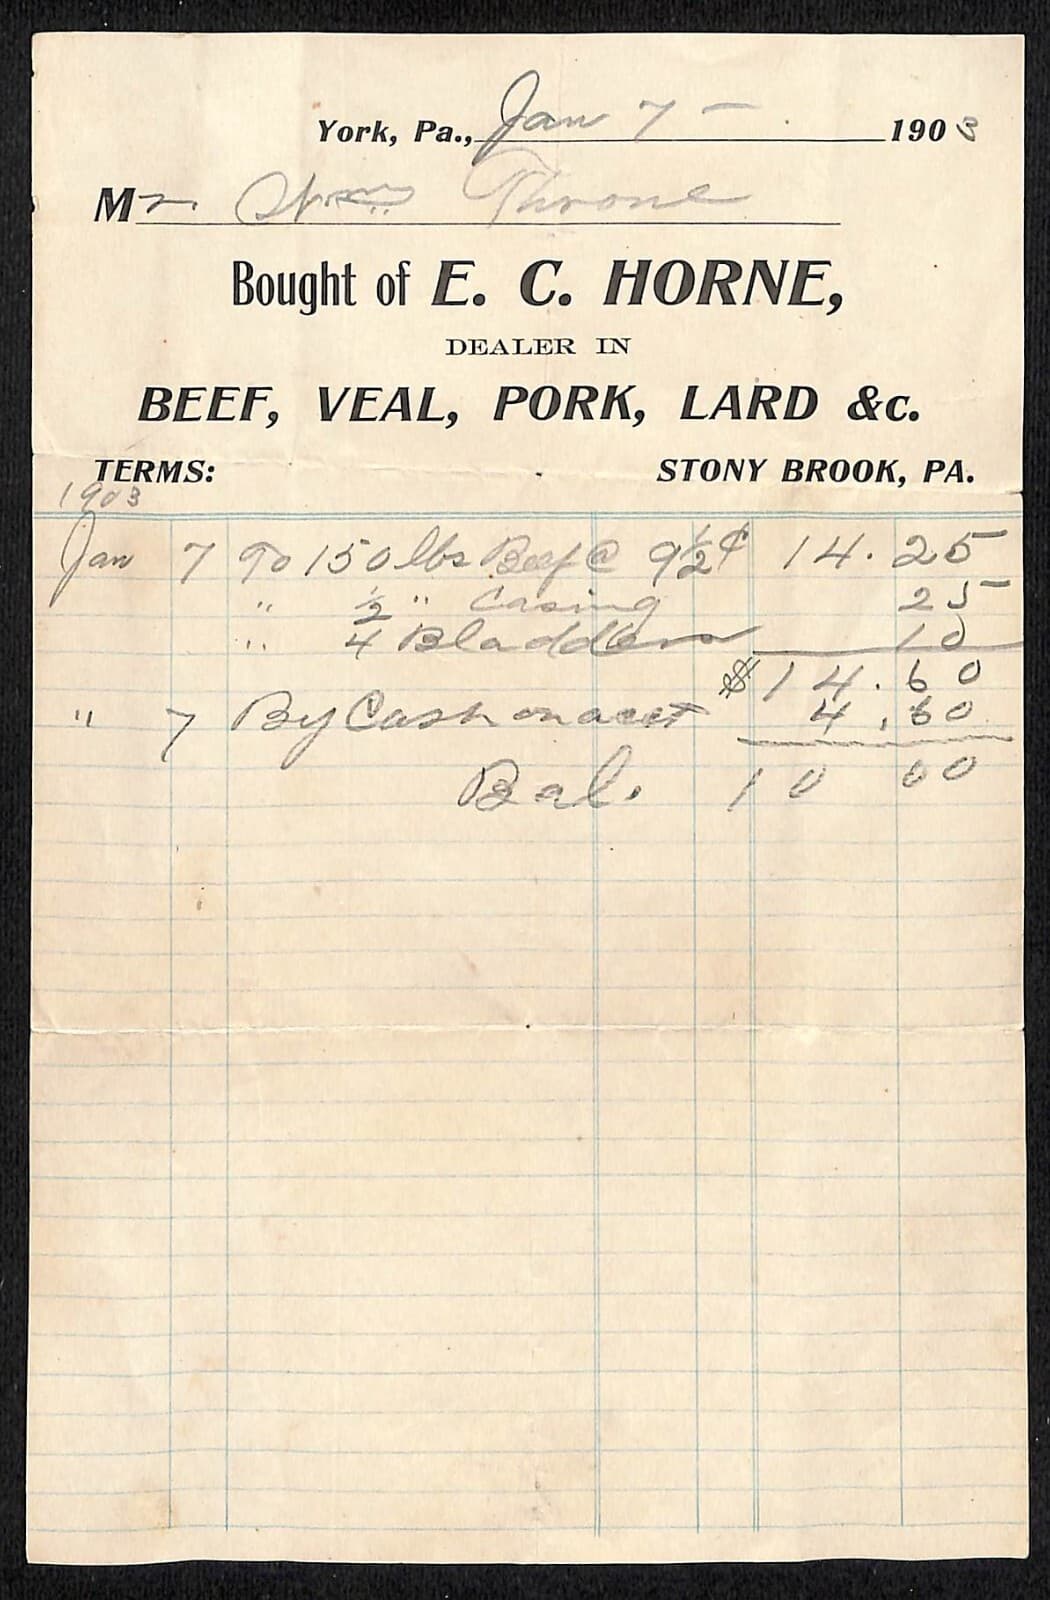 York, Pa., Jan 7 - 1903
Mr. Throne
Bought of E. C. HORNE,
DEALER IN
BEEF, VEAL, PORK, LARD &c.
TERMS: STONY BROOK, PA.
1903
Jan 7 To 150 lbs Beef @ 9½¢ 14.25
" ½ " Casing 25
" 4 Bladders 10
$14.60
" 7 By Cash on acct 4.60
Bal. 10 00